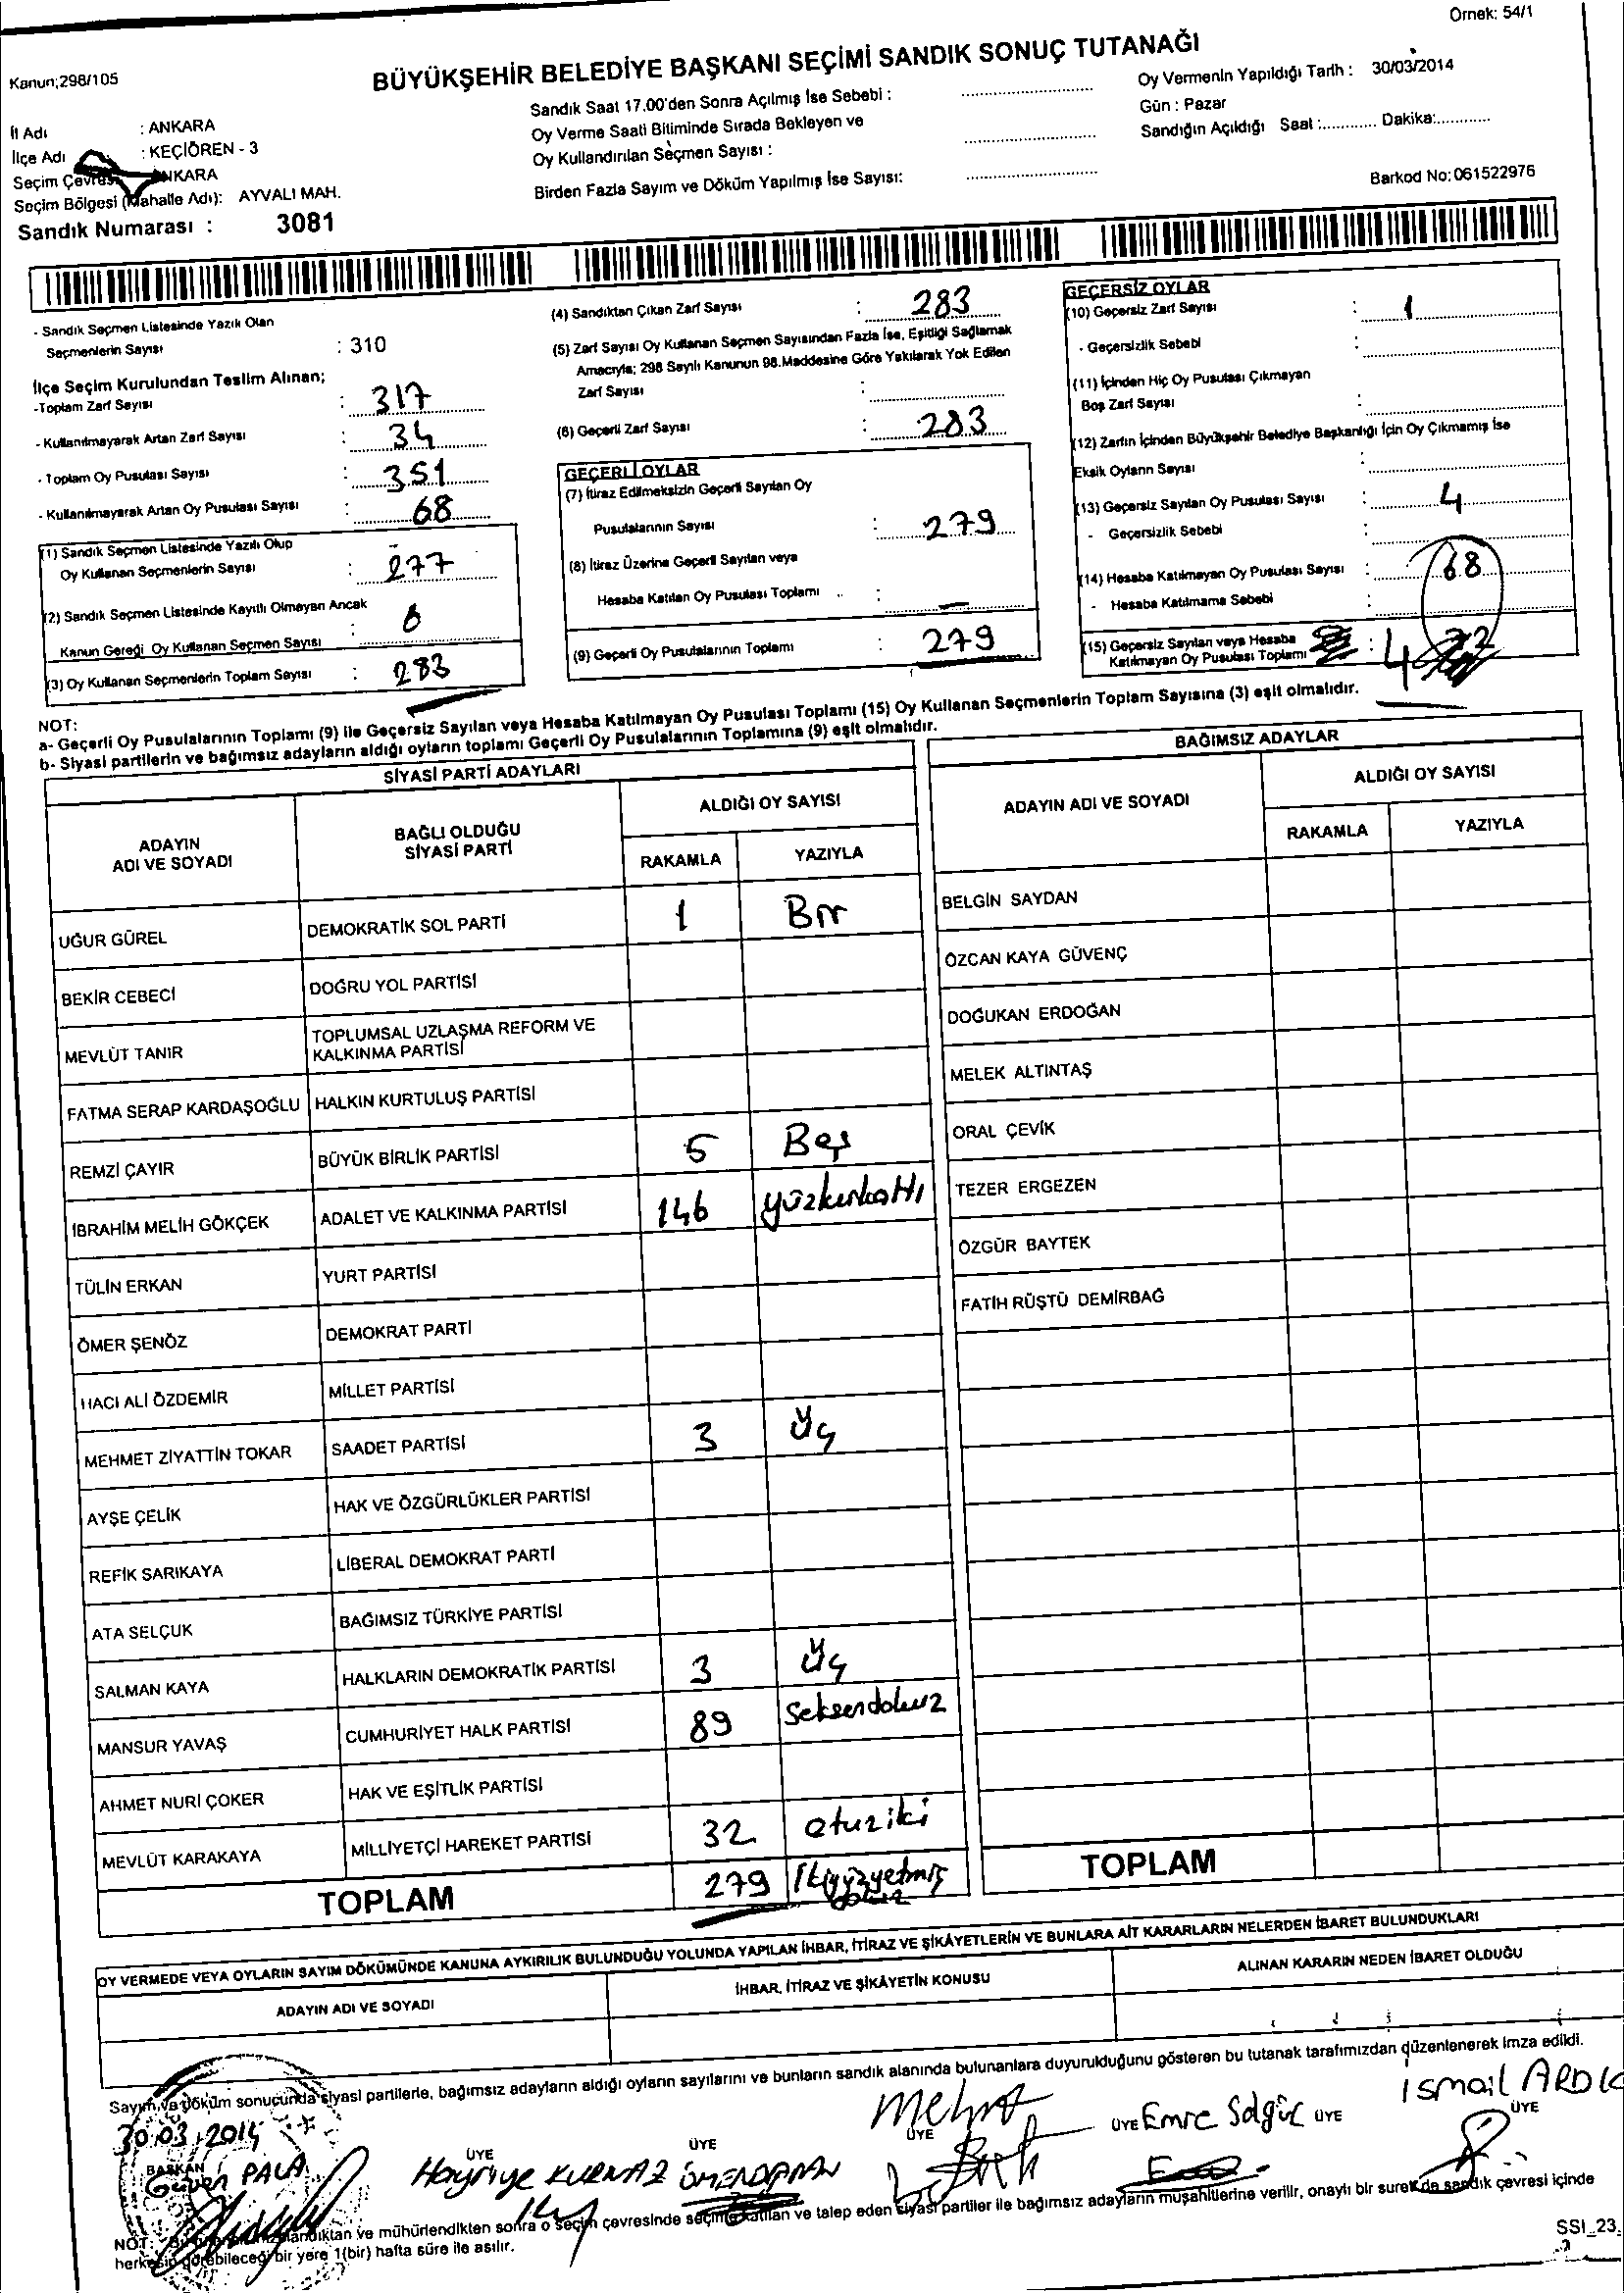 Örnek: 54/1
Kanun;298/105
BÜYÜKŞEHİR BELEDİYE BAŞKANI SEÇİMİ SANDIK SONUÇ TUTANAĞI
İl Adı : ANKARA
İlçe Adı : KEÇİÖREN - 3
Seçim Çevresi ANKARA
Seçim Bölgesi (Mahalle Adı): AYVALI MAH.
Sandık Numarası : 3081
Sandık Saat 17.00'den Sonra Açılmış İse Sebebi :
Oy Verme Saati Bitiminde Sırada Bekleyen ve
Oy Kullandırılan Seçmen Sayısı :
Birden Fazla Sayım ve Döküm Yapılmış İse Sayısı:
Oy Vermenin Yapıldığı Tarih : 30/03/2014
Gün : Pazar
Sandığın Açıldığı Saat :............ Dakika:............
Barkod No: 061522976
- Sandık Seçmen Listesinde Yazılı Olan
Seçmenlerin Sayısı : 310
İlçe Seçim Kurulundan Teslim Alınan;
-Toplam Zarf Sayısı : 317
- Kullanılmayarak Artan Zarf Sayısı : 34
- Toplam Oy Pusulası Sayısı : 351
- Kullanılmayarak Artan Oy Pusulası Sayısı : 68
(1) Sandık Seçmen Listesinde Yazılı Olup
Oy Kullanan Seçmenlerin Sayısı : 277
(2) Sandık Seçmen Listesinde Kayıtlı Olmayan Ancak
Kanun Gereği Oy Kullanan Seçmen Sayısı : 6
(3) Oy Kullanan Seçmenlerin Toplam Sayısı : 283
(4) Sandıktan Çıkan Zarf Sayısı : 283
(5) Zarf Sayısı Oy Kullanan Seçmen Sayısından Fazla İse, Eşitliği Sağlamak
Amacıyla; 298 Sayılı Kanunun 98.Maddesine Göre Yakılarak Yok Edilen
Zarf Sayısı :
(6) Geçerli Zarf Sayısı : 283
GEÇERLİ OYLAR
(7) İtiraz Edilmeksizin Geçerli Sayılan Oy
Pusulalarının Sayısı : 279
(8) İtiraz Üzerine Geçerli Sayılan veya
Hesaba Katılan Oy Pusulası Toplamı .. : —
(9) Geçerli Oy Pusulalarının Toplamı : 279
GEÇERSİZ OYLAR
(10) Geçersiz Zarf Sayısı : 1
- Geçersizlik Sebebi :
(11) İçinden Hiç Oy Pusulası Çıkmayan
Boş Zarf Sayısı :
(12) Zarfın İçinden Büyükşehir Belediye Başkanlığı İçin Oy Çıkmamış İse
Eksik Oyların Sayısı :
(13) Geçersiz Sayılan Oy Pusulası Sayısı : 4
- Geçersizlik Sebebi :
(14) Hesaba Katılmayan Oy Pusulası Sayısı : 68
- Hesaba Katılmama Sebebi :
(15) Geçersiz Sayılan veya Hesaba
Katılmayan Oy Pusulası Toplamı : 4
NOT:
a- Geçerli Oy Pusulalarının Toplamı (9) ile Geçersiz Sayılan veya Hesaba Katılmayan Oy Pusulası Toplamı (15) Oy Kullanan Seçmenlerin Toplam Sayısına (3) eşit olmalıdır.
b- Siyasi partilerin ve bağımsız adayların aldığı oyların toplamı Geçerli Oy Pusulalarının Toplamına (9) eşit olmalıdır.
SİYASİ PARTİ ADAYLARI
ADAYIN ADI VE SOYADI
BAĞLI OLDUĞU SİYASİ PARTİ
ALDIĞI OY SAYISI
RAKAMLA YAZIYLA
UĞUR GÜREL DEMOKRATİK SOL PARTİ 1 Bir
BEKİR CEBECİ DOĞRU YOL PARTİSİ
MEVLÜT TANIR TOPLUMSAL UZLAŞMA REFORM VE KALKINMA PARTİSİ
FATMA SERAP KARDAŞOĞLU HALKIN KURTULUŞ PARTİSİ
REMZİ ÇAYIR BÜYÜK BİRLİK PARTİSİ 5 Beş
İBRAHİM MELİH GÖKÇEK ADALET VE KALKINMA PARTİSİ 146 yüzkırkaltı
TÜLİN ERKAN YURT PARTİSİ
ÖMER ŞENÖZ DEMOKRAT PARTİ
HACI ALİ ÖZDEMİR MİLLET PARTİSİ
MEHMET ZİYATTİN TOKAR SAADET PARTİSİ 3 Üç
AYŞE ÇELİK HAK VE ÖZGÜRLÜKLER PARTİSİ
REFİK SARIKAYA LİBERAL DEMOKRAT PARTİ
ATA SELÇUK BAĞIMSIZ TÜRKİYE PARTİSİ
SALMAN KAYA HALKLARIN DEMOKRATİK PARTİSİ 3 Üç
MANSUR YAVAŞ CUMHURİYET HALK PARTİSİ 89 Seksendokuz
AHMET NURİ ÇOKER HAK VE EŞİTLİK PARTİSİ
MEVLÜT KARAKAYA MİLLİYETÇİ HAREKET PARTİSİ 32 otuziki
TOPLAM 279 İkiyüzyetmiş dokuz
BAĞIMSIZ ADAYLAR
ADAYIN ADI VE SOYADI
ALDIĞI OY SAYISI
RAKAMLA YAZIYLA
BELGİN SAYDAN
ÖZCAN KAYA GÜVENÇ
DOĞUKAN ERDOĞAN
MELEK ALTINTAŞ
ORAL ÇEVİK
TEZER ERGEZEN
ÖZGÜR BAYTEK
FATİH RÜŞTÜ DEMİRBAĞ
TOPLAM
OY VERMEDE VEYA OYLARIN SAYIM DÖKÜMÜNDE KANUNA AYKIRILIK BULUNDUĞU YOLUNDA YAPILAN İHBAR, İTİRAZ VE ŞİKÂYETLERİN VE BUNLARA AİT KARARLARIN NELERDEN İBARET BULUNDUKLARI
ADAYIN ADI VE SOYADI
İHBAR, İTİRAZ VE ŞİKÂYETİN KONUSU
ALINAN KARARIN NEDEN İBARET OLDUĞU
Sayım ve döküm sonucunda siyasi partilerle, bağımsız adayların aldığı oyların sayılarını ve bunların sandık alanında bulunanlara duyurulduğunu gösteren bu tutanak tarafımızdan düzenlenerek imza edildi.
30.03.2014
BAŞKAN
Güven PALA
ÜYE
Hayriye KURNAZ
ÜYE
ÜYE
ÜYE Emre
ÜYE
İsmail
ÜYE
ve mühürlendikten sonra o seçim çevresinde seçime katılan ve talep eden siyasi partiler ile bağımsız adayların müşahitlerine verilir, onaylı bir suret de sandık çevresi içinde
herkesin görebileceği bir yere 1(bir) hafta süre ile asılır.
SSI_23.